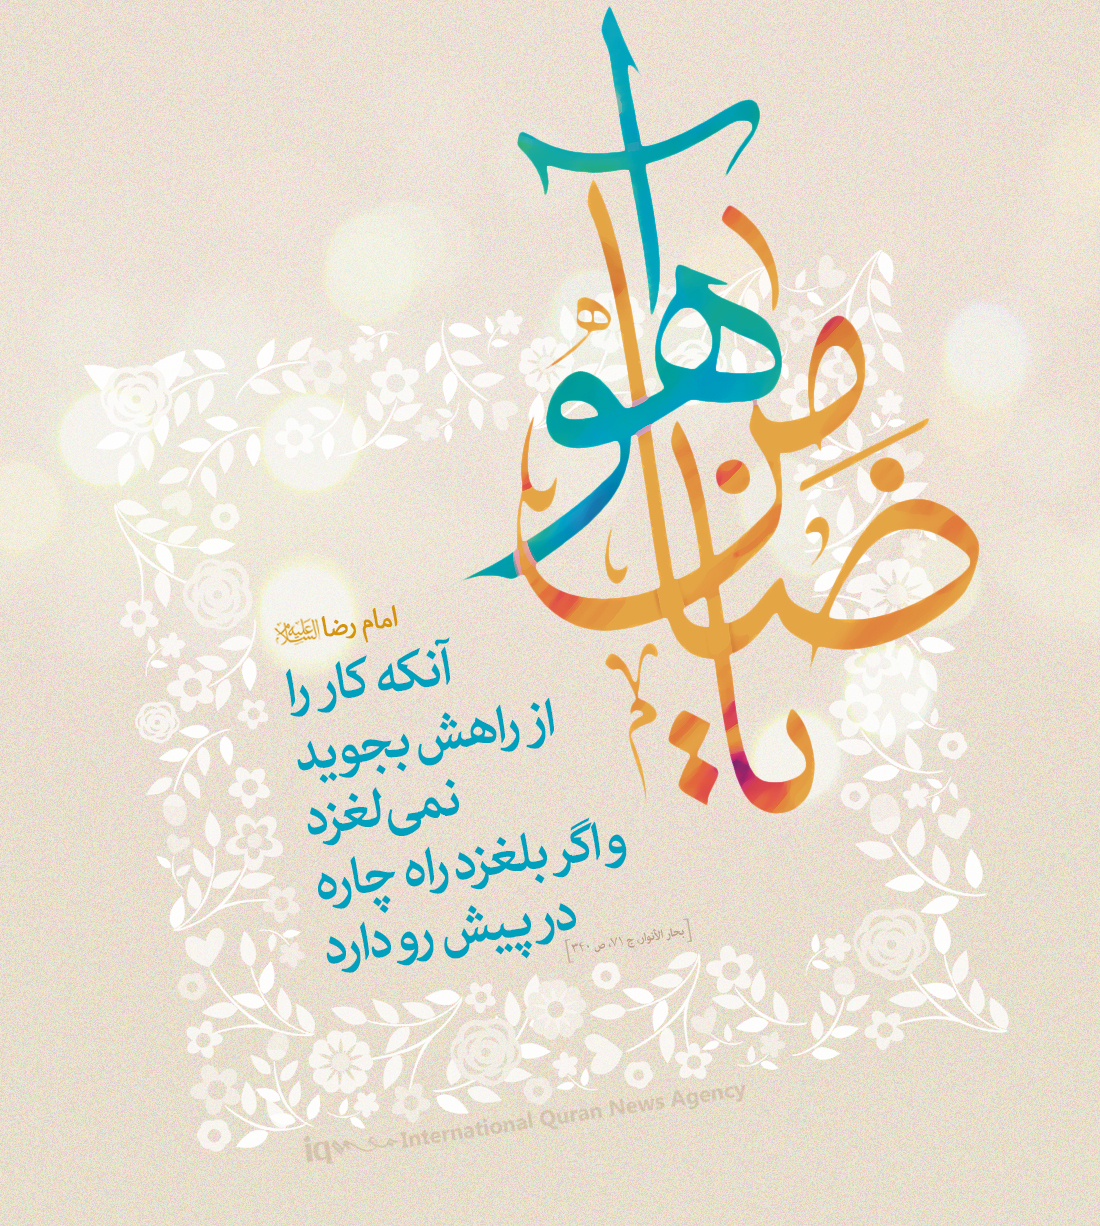 یا ضامن آهو
امام رضا علیه‌السلام
آنکه کار را
از راهش بجوید
نمی‌لغزد
و اگر بلغزد راه چاره
در پیش رو دارد
[بحار الأنوار، ج ۷۱، ص ۳۴۰]
iqna International Quran News Agency